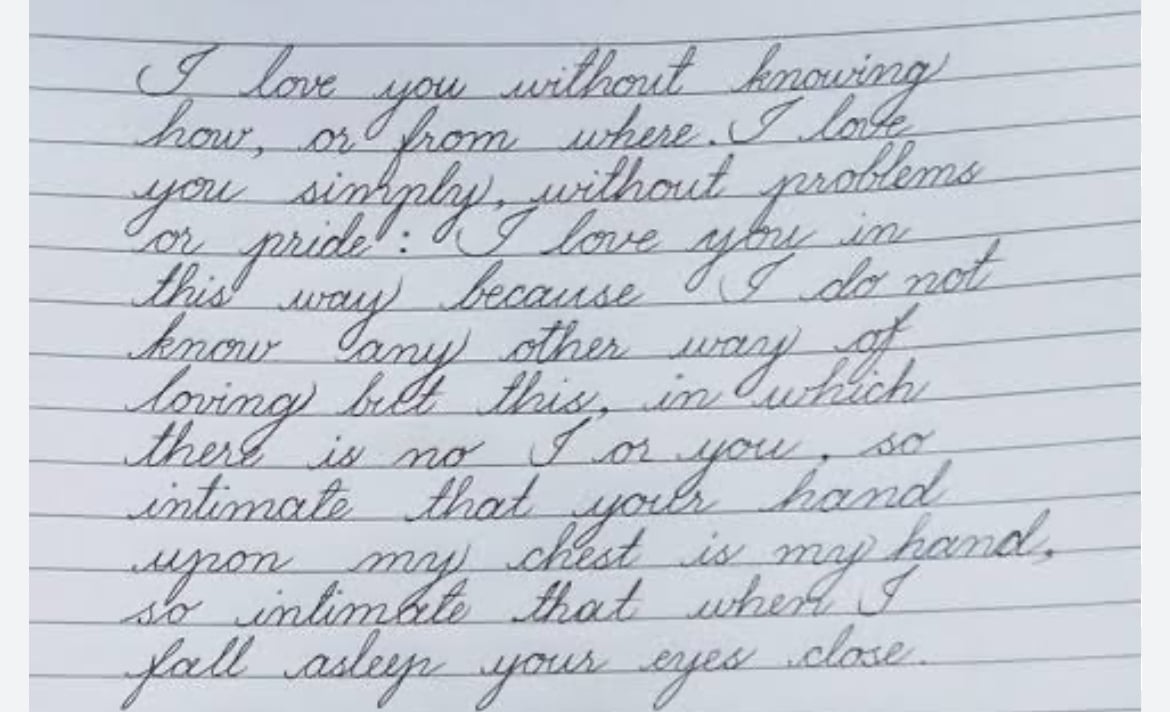 I love you without knowing
how, or from where. I love
you simply, without problems
or pride: I love you in
this way because I do not
know any other way of
loving but this, in which
there is no I or you, so
intimate that your hand
upon my chest is my hand,
so intimate that when I
fall asleep your eyes close.